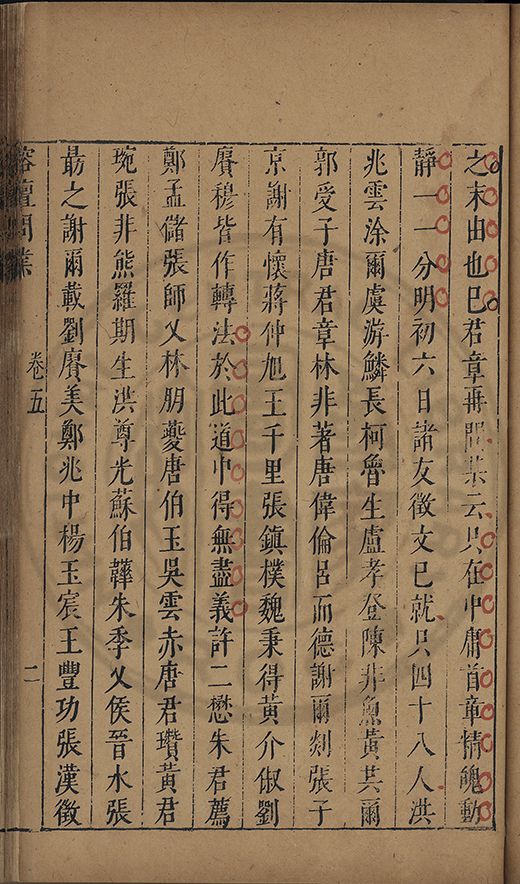 之末由也已君章再問某云只在中庸首章情魄動
靜一一分明初六日諸友徵文已就只四十八人洪
兆雲涂爾虞游鱗長柯魯生盧孝登陳非魚黃共爾
郭受子唐君章林非著唐偉倫呂而德謝爾剡張子
京謝有懷蔣仲旭王千里張鎮樸魏秉得黃介俶劉
賡穆皆作轉法於此道中得無盡義許二懋朱君薦
鄭孟儲張師乂林朋夔唐伯玉吳雲赤唐君瓚黃君
琬張非熊羅期生洪尊光蘇伯韡朱季乂侯晉水張
勗之謝爾載劉賡美鄭兆中楊玉宸王豐功張漢徵
榕壇問業
卷五
二